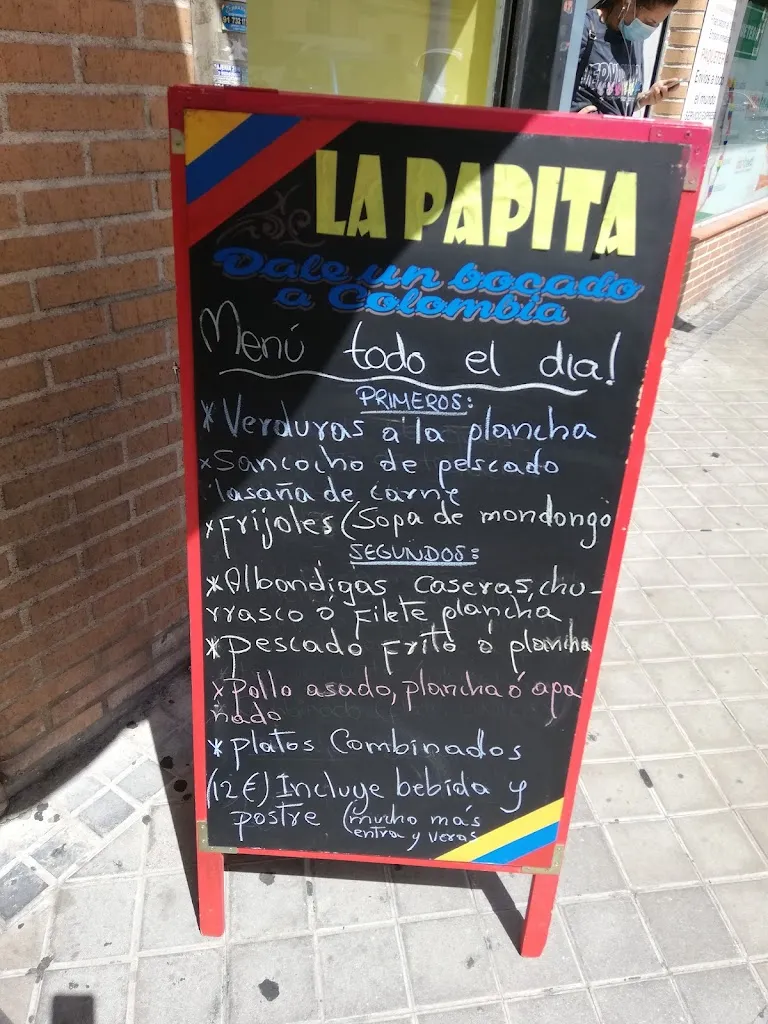 LA PAPITA
Dale un bocado
a Colombia
Menú todo el dia!
PRIMEROS:
*Verduras a la plancha
*Sancocho de pescado
lasaña de carne
*Frijoles (Sopa de mondongo
SEGUNDOS:
*Albondigas Caseras, chu-
rrasco ó Filete plancha
*Pescado frito ó plancha
*Pollo asado, plancha ó apa
nado
*platos Combinados
(12€) Incluye bebida y
postre (mucho más
entra y veras
Envios a todo
el mundo